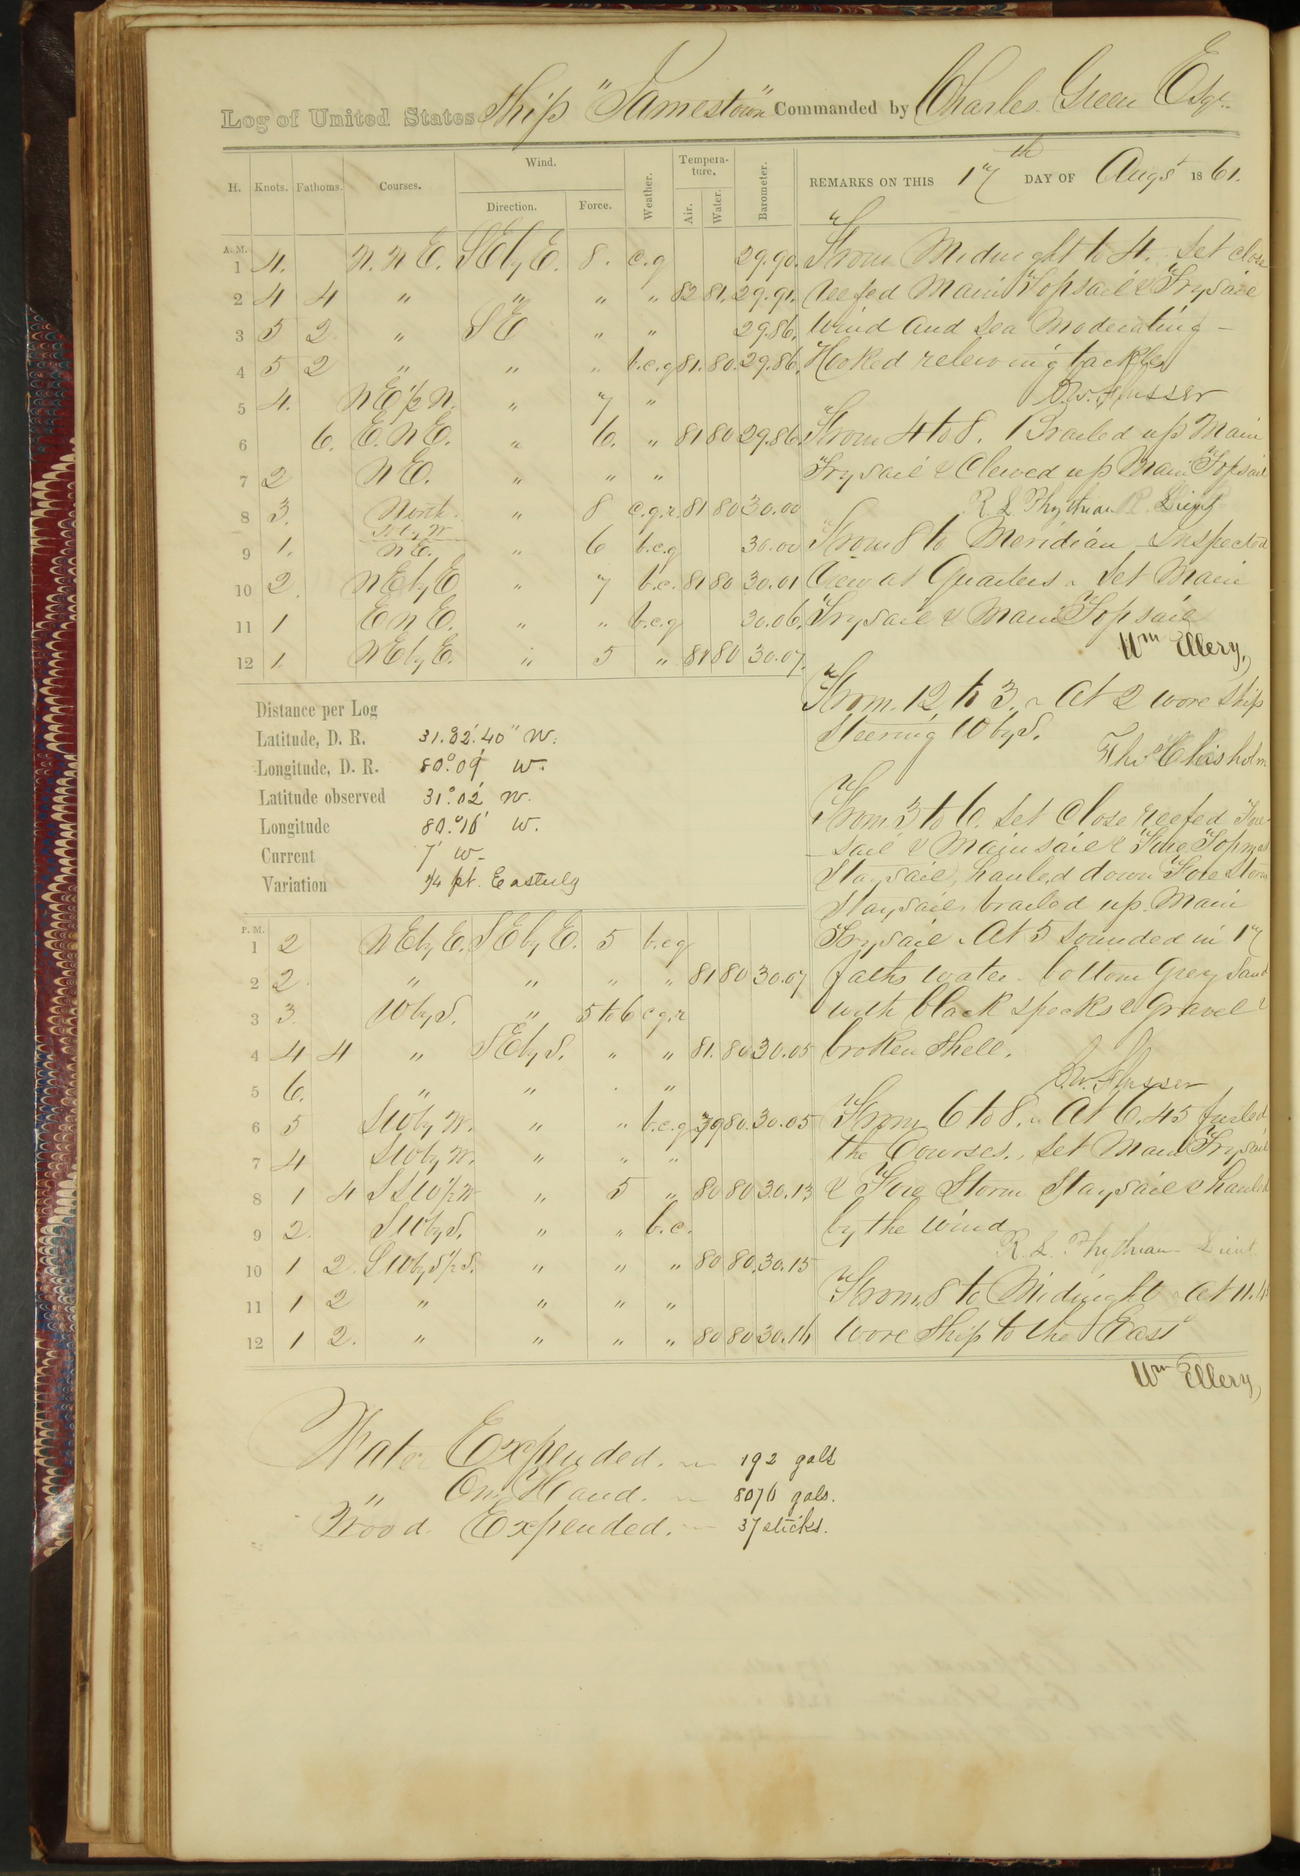 Log of United States Ship "Jamestown" Commanded by Charles Green Esqr.
H. Knots. Fathoms. Courses. Wind. Direction. Force. Weather. Temperature. Air. Water. Barometer. REMARKS ON THIS 17th DAY OF Augst 1861.
A.M.
1 4. N.N.E. SEbyE. 8. c.g 29.90.
2 4 4 " " " " 82 81. 29.91.
3 5 2. " SE " " 29.86.
4 5 2 " " " b.c.g 81. 80. 29.86.
5 4. NE½N. " 7 "
6 6. E.N.E. " 6. " 81 80 29.86.
7 2 NE. " " "
8 3. North. " 8 c.g.r. 81 80 30.00
9 1. NE. " 6 b.c.g 30.00
10 2. NEbyE " 7 b.c. 81 80 30.01
11 1 ENE. " " b.c.g 30.06.
12 1. NEbyE. " 5 " 81 80 30.07.
From Midnight to 4. Set close
reefed Main Topsail & Trysail
Wind and Sea Moderating –
Hooked relieving tackles
C.W. Flusser
From 4 to 8. Brailed up Main
Trysail & Clewed up Main Topsail
R. L. Phythian Lieut
From 8 to Meridian Inspected
Crew at Quarters. Set Main
Trysail & Main Topsail
Wm Ellery,
From 12 to 3. At 2 wore ship
Steering WbyS.
Chisholm
From 3 to 6. Set close reefed Fore
sail & Mainsail & Fore Topmast
Staysail, hauled down Fore Storm
Staysail, brailed up Main
Trysail. At 5 sounded in 17
faths water. bottom Grey Sand
with black specks & Gravel &
broken Shell.
C.W. Flusser
From 6 to 8. At 6.45 furled
the Courses, Set Main Trysail
& Fore Storm Staysail & hauled
by the wind
R. L. Phythian Lieut
From 8 to Midnight At 11.
wore Ship to the East
Wm Ellery,
Distance per Log
Latitude, D. R. 31.32'.40" N.
Longitude, D. R. 80°.09' W.
Latitude observed 31°.02' N.
Longitude 80.°16' W.
Current 7' W-
Variation ¾ pt. Easterly
P.M.
1 2 NEbyE. SEbyE. 5 b.c.g
2 2. " " " " 81 80 30.07
3 3. WbyS. " 5 to 6 c.g.r
4 4 4 " SEbyS. " " 81. 80 30.05
5 6. " " . "
6 5 SWbyW. " " b.c.g 79 80. 30.05
7 4 SWbyW. " " "
8 1 4 SSW½W " 5 " 80 80 30.13
9 2. SWbyS. " " b.c.
10 1 2. SWbyS½S. " " " 80 80. 30.15
11 1 2 " " " "
12 1 2. " " " " 80 80 30.16
Water Expended. 192 galls
" On Hand. 8076 gals.
Wood Expended. 37 sticks.